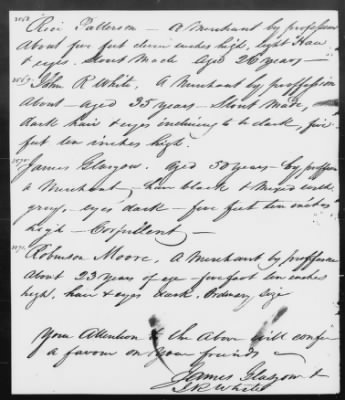 2068
Rice Patterson — A Merchant by profession
About five feet eleven inches high, light Hair
& eyes. Stout Made Aged 26 years —
2069
John R White, A Merchant by proffession
About — aged 35 years — Stout Made,
dark hair & eyes inclining to be dark, five
feet ten inches high.
2070
James Glasgow. aged 50 years — by proffession
a Merchant, hair black & Mixed with
grey, eyes dark — five feet ten inches
high — Corpullent —
2071
Robinson Moore, A Merchant by proffession
about 23 years of age — five foot ten inches
high, hair & eyes dark, Ordinary size
Your Attention to the above will confer
a favour on your friends —
James Glasgow &
J R White